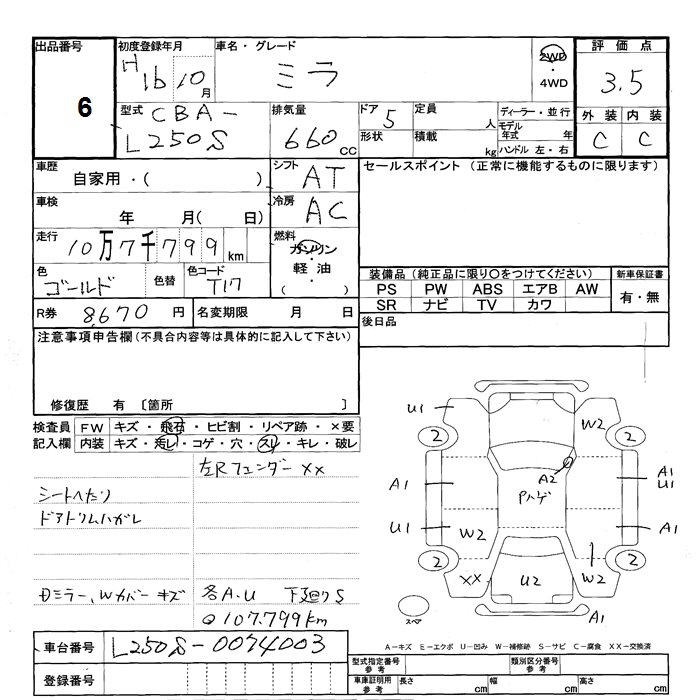 出品番号 6
初度登録年月 H16 10月
車名・グレード ミラ
2WD・4WD
評価点 3.5
型式 CBA-L250S
排気量 660cc
ドア 5
形状
定員 人
積載 kg
ディーラー・並行
モデル年式 年
ハンドル 左・右
外装 C
内装 C
車歴 自家用・( )
シフト AT
セールスポイント (正常に機能するものに限ります)
車検 年 月( 日)
冷房 AC
走行 10万7千799km
燃料 ガソリン・軽油( )
色 ゴールド
色替
色コード T17
装備品 (純正品に限り○をつけてください)
新車保証書
PS PW ABS エアB AW
有・無
SR ナビ TV カワ
R券 8,670円
名変期限 月 日
後日品
注意事項申告欄 (不具合内容等は具体的に記入して下さい)
修復歴 有 〔箇所 〕
検査員記入欄
FW キズ・飛石・ヒビ割・リペア跡・×要
内装 キズ・汚レ・コゲ・穴・スレ・キレ・破レ
左Rフェンダー XX
シートヘたり
ドアトリムハガレ
Dミラー、Wカバーキズ
各A.U 下廻りS
◎107.799km
U1 W2
2 2
A2
A1 Pハゲ A1 U1
U1 W2 A1
2 2
XX U2 W2
スペア A1
車台番号 L250S-0074003
登録番号
A-キズ E-エクボ U-凹み W-補修跡 S-サビ C-腐食 XX-交換済
型式指定番号 参考
類別区分番号 参考
車庫証明用 参考 長さ cm 幅 cm 高さ cm